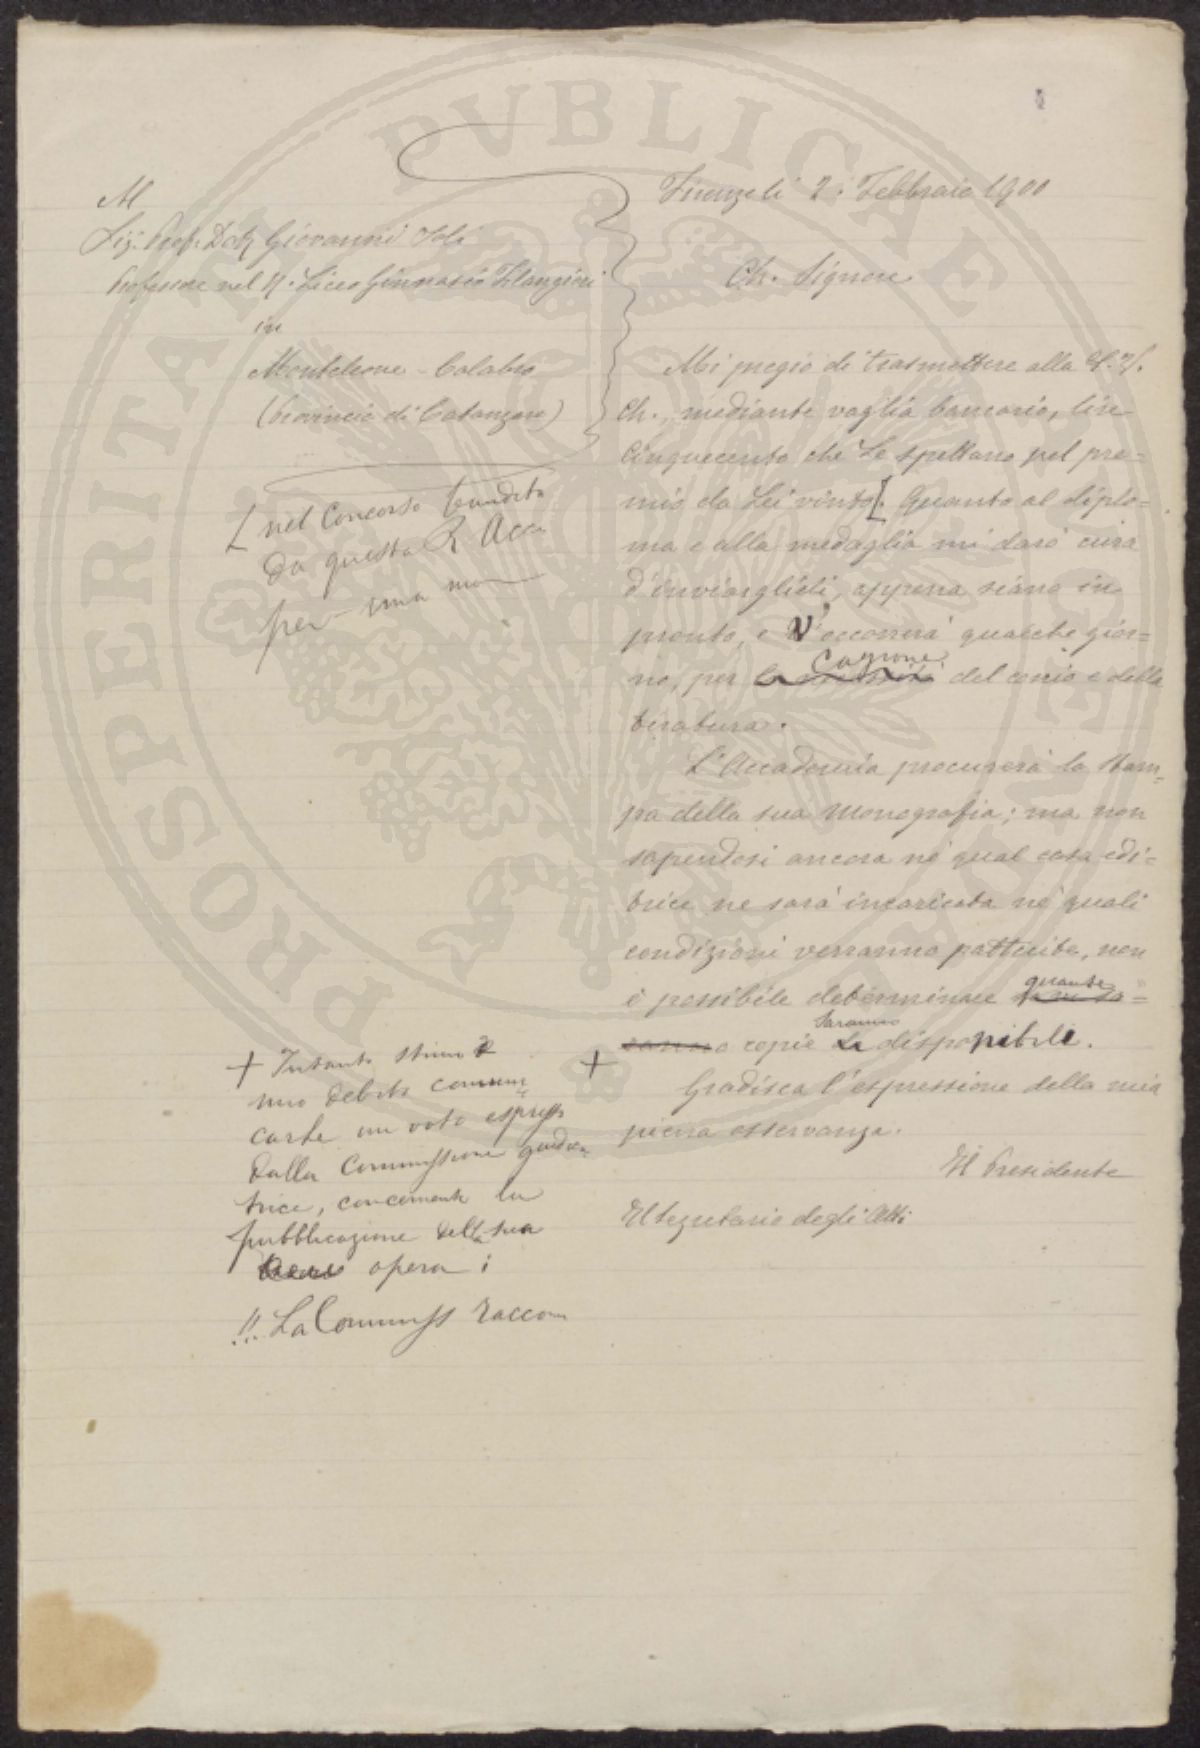 Al
Sig. Prof. Dott. Giovanni
Professore nel R. Liceo Ginnasio Filangieri
in
Monteleone - Calabro
(Provincia di Catanzaro)
[ nel Concorso bandito
da questa R. Acca
per una mon
Firenze li 2. Febbraio 1900
Ch. Signore
Mi pregio di trasmettere alla S. V.
Ch., mediante vaglia bancario, lire
Cinquecento che Le spettano pel pre=
mio da Lei vinto[. Quanto al diplo=
ma e alla medaglia mi darò cura
d'inviarglieli, appena siano in
pronto, e v'occorrerà qualche gior=
no, per cagione del conio e della
tiratura.
L'Accademia procurerà la stam=
pa della sua Monografia; ma non
sapendosi ancora nè qual casa edi=
trice ne sarà incaricata nè quali
condizioni verranno pattuite, non
è possibile determinare quante
copie saranno disponibili.
+
Gradisca l'espressione della mia
piena osservanza.
Il Presidente
Il Segretario degli Atti
+ Intanto stimo
mio debito comuni
carle un voto espresso
dalla Commissione giudica
trice, concernente la
pubblicazione della sua
opera:
!!. La Commiss raccom
PROSPERITATI PVBLICAE AVGENDAE